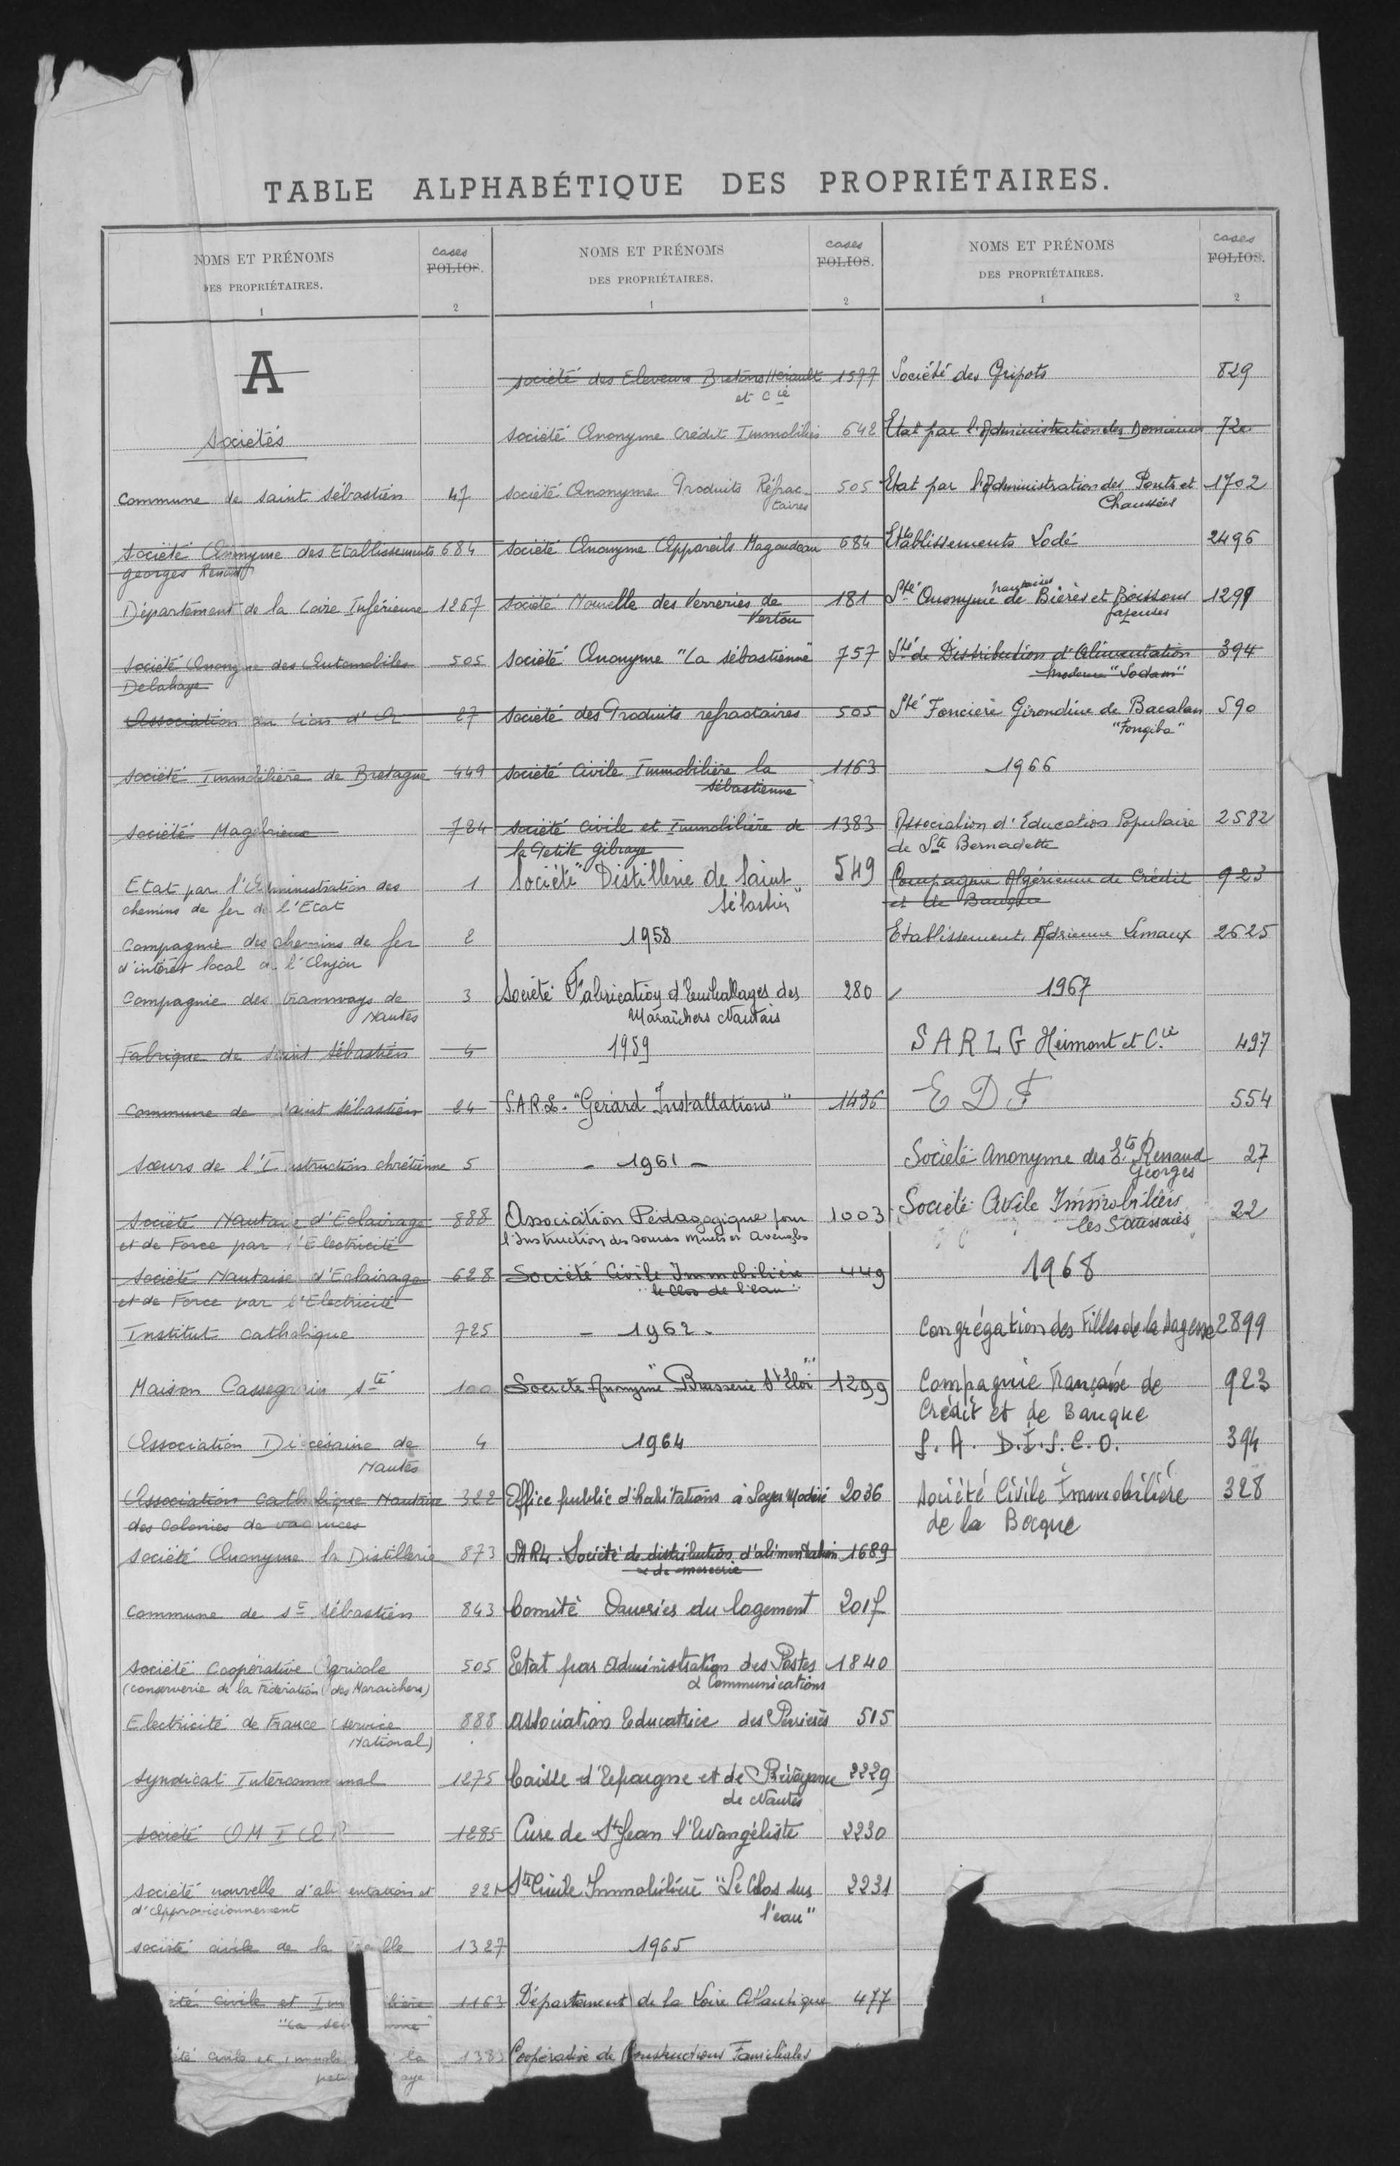 TABLE ALPHABÉTIQUE DES PROPRIÉTAIRES.
NOMS ET PRÉNOMS
DES PROPRIÉTAIRES.
1
cases
FOLIOS.
2
A
Sociétés
Commune de Saint Sébastien 47
Société Anonyme des Etablissements 684
georges Renaud
Département de la Loire Inférieure 1267
Société Anonyme des Automobiles 505
Delahaye
Association au Lion d'Or 27
Société Immobilière de Bretagne 449
Société Magebrieux 724
Etat par l'Administration des 1
chemins de fer de l'Etat
Compagnie des chemins de fer 2
d'intérêt local de l'Anjou
Compagnie des tramways de 3
Nantes
Fabrique de Saint Sébastien 4
Commune de Saint Sébastien 24
Sœurs de l'Instruction chrétienne 5
Société Nantaise d'Eclairage 888
et de Force par l'Electricité
Société Nantaise d'Eclairage 628
et de Force par l'Electricité
Institut catholique 725
Maison Cassegrain Sté 100
Association Diocésaine de 4
Nantes
Association catholique Nantaise 322
des Colonies de vacances
Société Anonyme la Distillerie 873
Commune de St Sébastien 843
Société Coopérative Agricole 505
(conserverie de la Fédération des Maraichers)
Electricité de France (service 888
National)
Syndicat Intercommunal 1275
Société OMICER 1285
Société nouvelle d'alimentation et 221
d'Approvisionnement
Société civile de la 1327
ité civile et Im bilière 1163
"La Séb nne"
ité civile et immob la 1383
pet aye
NOMS ET PRÉNOMS
DES PROPRIÉTAIRES.
1
cases
FOLIOS.
2
Société des Eleveurs Bretons Hérault 1577
et Cie
Société Anonyme Crédit Immobilier 642
Société Anonyme Produits Réfrac- 505
taires
Société Anonyme Appareils Magondeau 684
Société Nouvelle des Verreries de 181
Vertou
Société Anonyme "La Sébastienne" 757
Société des Produits refractaires 505
Société Civile Immobilière la 1163
Sébastienne
Société civile et Immobilière de 1383
la Petite Gibraye
Société "Distillerie de Saint 549
Sébastien"
1958
Société Fabrication d'Emballages des 280
Maraîchers Nantais
1959
S.A.R.L. "Gérard Installations" 1436
- 1961 -
Association Pédagogique pour 1003
l'Instruction des Sourds Muets et Aveugles
Société Civile Immobilière 449
"le Clos de l'eau"
- 1962 -
Société Anonyme "Brasserie St Eloi" 1299
1964
Office public d'habitations à Loyer Modéré 2036
SARL. Société de distribution d'alimentation 1689
& de mercerie
Comité Ouvriers du logement 2017
Etat par Administration des Postes 1840
& Communications
Association Educatrice des Perrières 515
Caisse d'Epargne et de Prévoyance 2229
de Nantes
Cure de St Jean l'Evangéliste 2230
Sté Civile Immobilière "Le Clos sur 2231
l'eau"
1965
Département de la Loire Atlantique 477
Coopérative de Constructions Familiales
NOMS ET PRÉNOMS
DES PROPRIÉTAIRES.
1
cases
FOLIOS.
2
Société des Gripots 829
Etat par l'Administration des Domaines 72
Etat par l'Administration des Ponts et 1702
Chaussées
Etablissements Lodé 2496
Sté Anonyme nantaise de Bières et Boissons 1299
gazeuses
Sté de Distribution d'Alimentation 394
Moderne "Sodam"
Sté Foncière Girondine de Bacalan 590
"Fongiba"
1966
Association d'Education Populaire 2582
de Ste Bernadette
Compagnie Algérienne de Crédit 923
et de Banque
Etablissement Adrienne Lemaux 2625
1967
S A R L G Heimont et Cie 497
E D F 554
Société Anonyme des Ets Renaud 27
Georges
Société Civile Immobilière 22
les Saussaies
1968
Congrégation des Filles de la Sagesse 2899
Compagnie Française de 923
Crédit et de Banque
S. A. D.I.S.C.O. 394
Société Civile Immobilière 328
de la Bocque